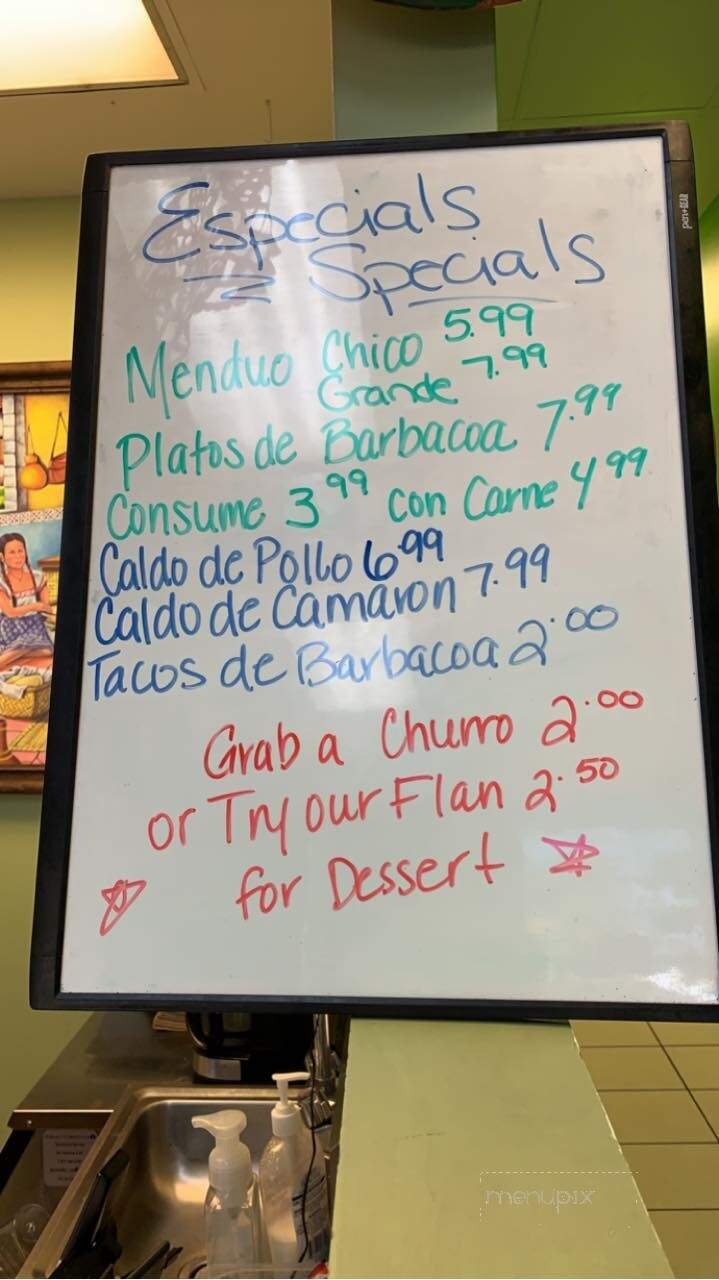 Especials
Specials
Menduo Chico 5.99
Grande 7.99
Platos de Barbacoa 7.99
Consume 3.99 con Carne 4.99
Caldo de Pollo 6.99
Caldo de Camaron 7.99
Tacos de Barbacoa 2.00
Grab a Churro 2.00
or Try our Flan 2.50
for Dessert
menupix